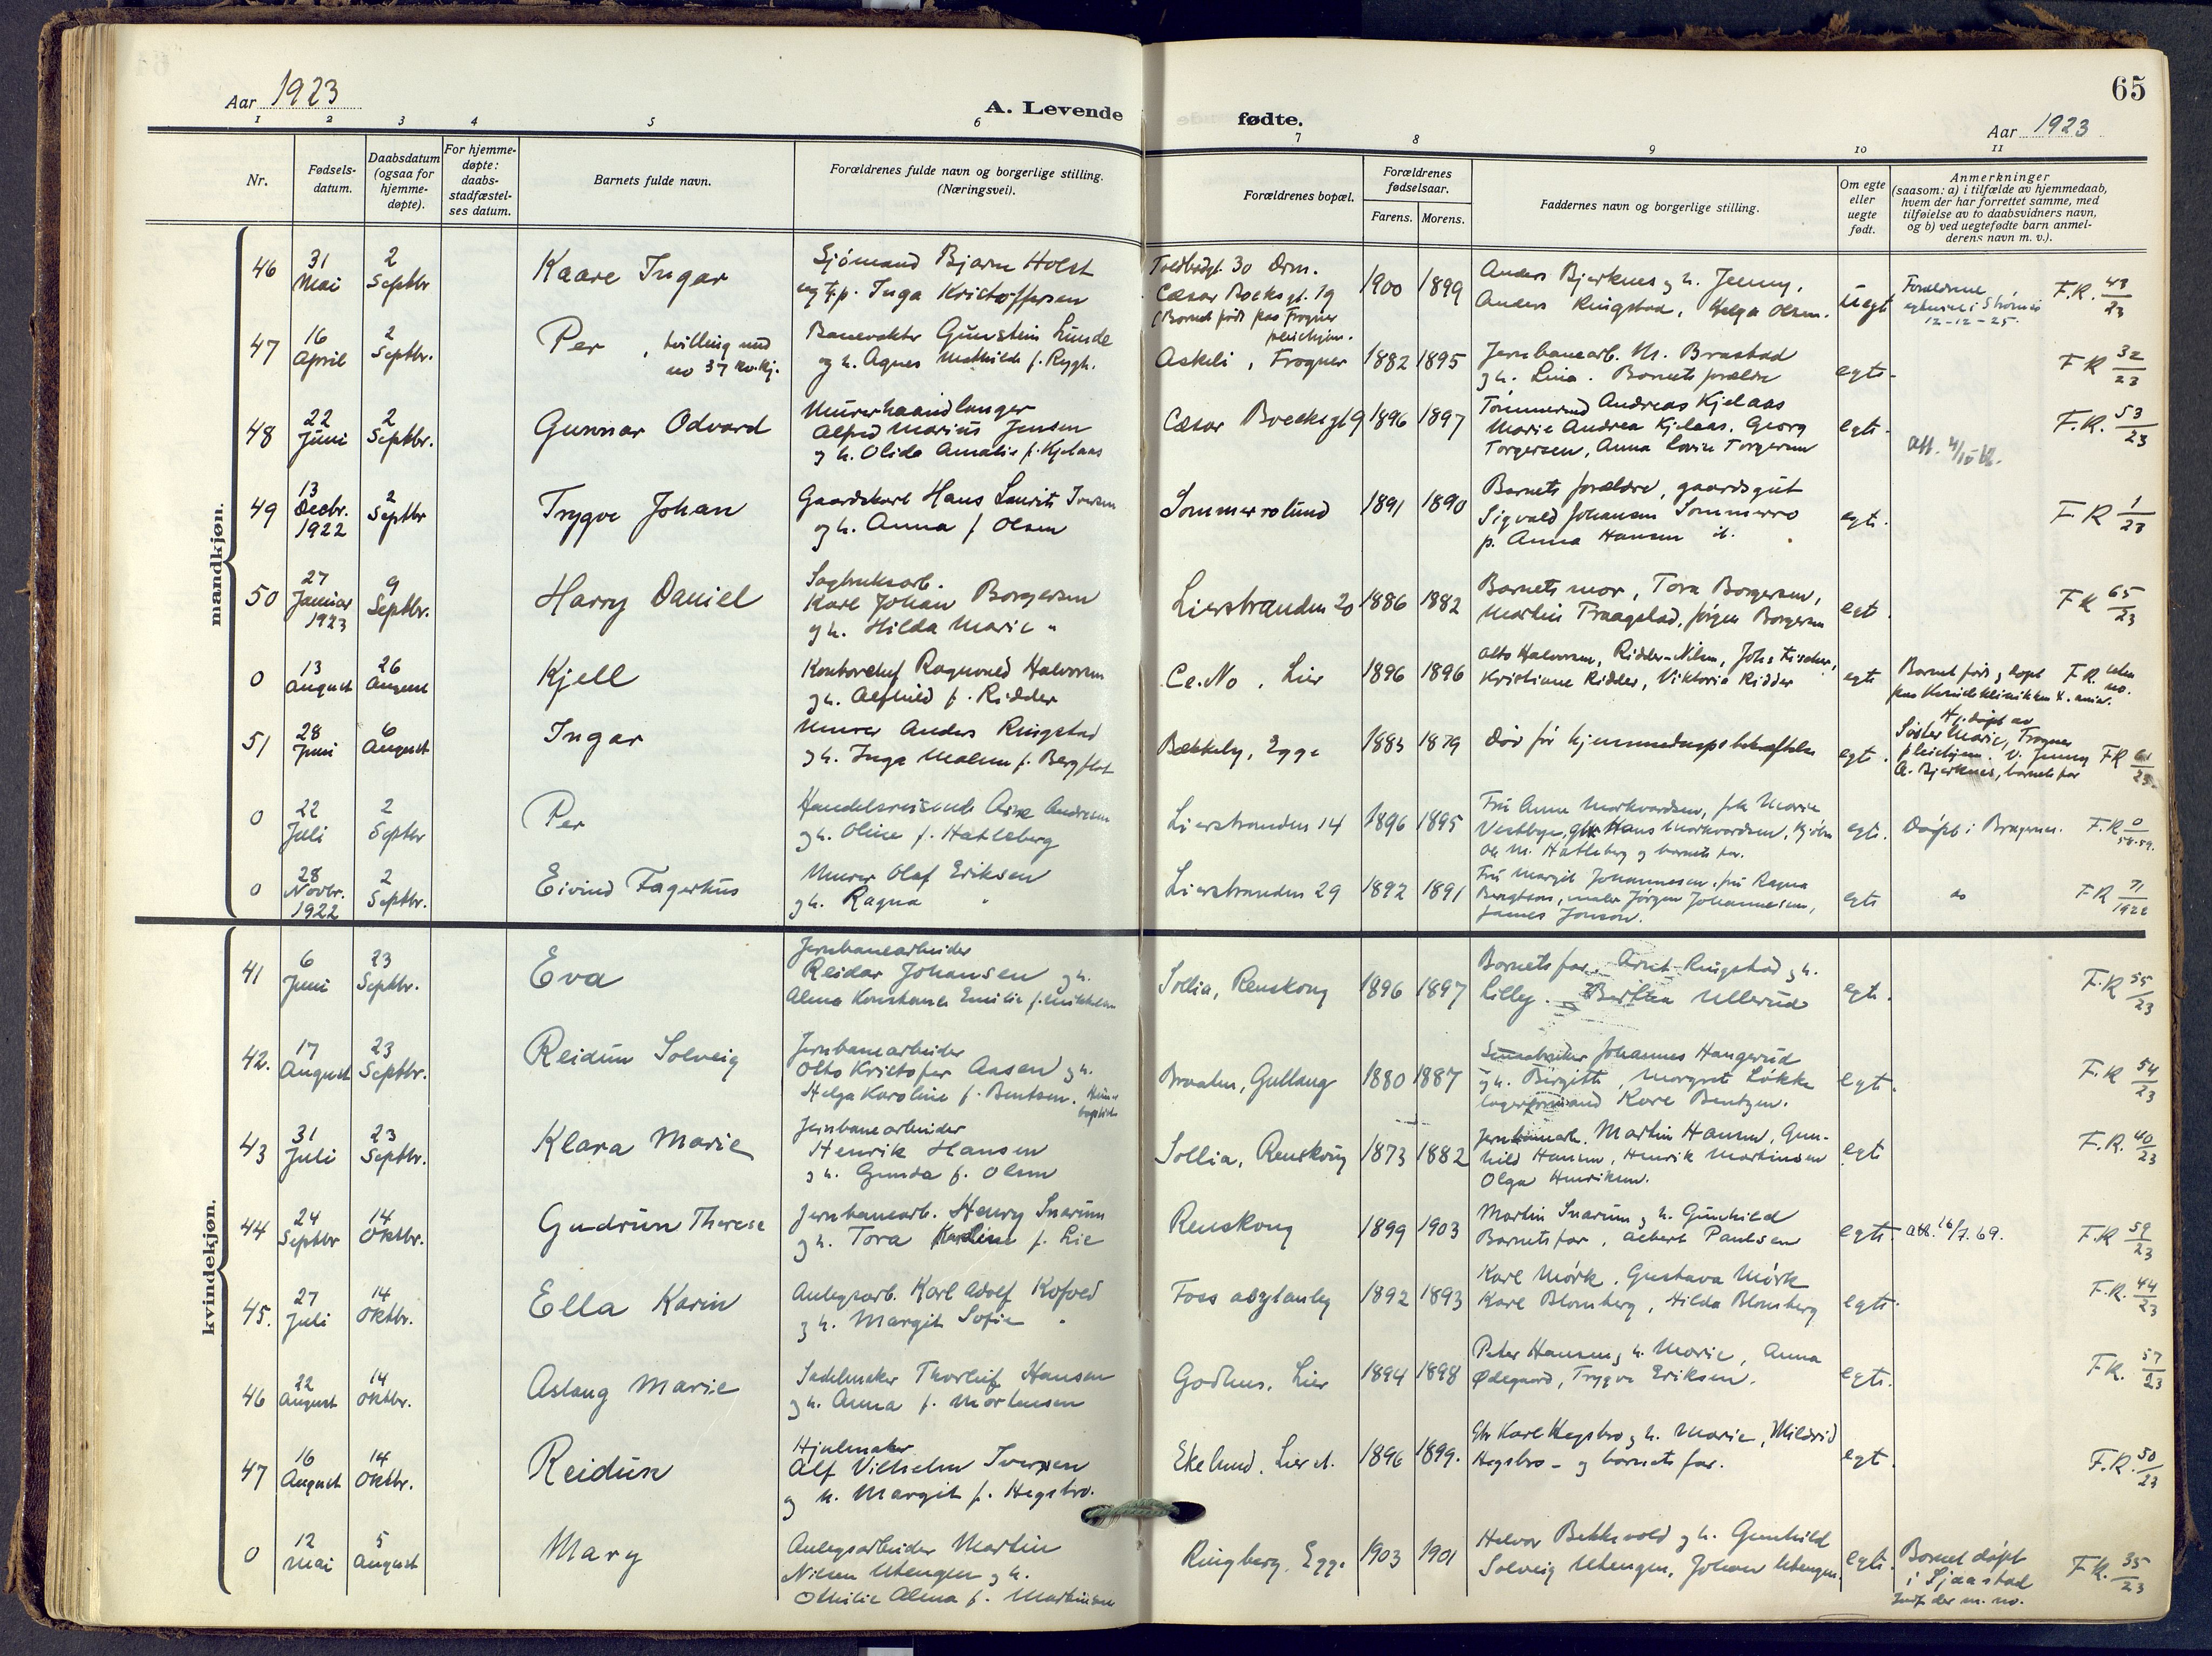 65
Aar 1923
A. Levende fødte.
Aar 1923
1 2 3 4 5 6 7 8 9 10 11
Nr.
Fødsels-
datum.
Daabsdatum
(ogsaa for
hjemme-
døpte).
For hjemme-
døpte:
daabs-
stadfæstel-
ses datum.
Barnets fulde navn.
Forældrenes fulde navn og borgerlige stilling.
(Næringsvei).
Forældrenes bopæl.
Forældrenes
fødselsaar.
Farens. Morens.
Faddernes navn og borgerlige stilling.
Om egte
eller
uegte
født.
Anmerkninger
(saasom: a) i tilfælde av hjemmedaab,
hvem der har forrettet samme, med
tilføielse av to daabsvidners navn,
og b) ved uegtefødte barn anmel-
derens navn m. v.).
mandkjøn.
46
31
Mai
2
Septbr
Kaare Ingar
Sjømand Bjarne Holst
Inga Kristoffersen
30 Drm.
Cæsar Boeksgt. 19
(Barnet født paa Frogner
pleiehjem.
1900 1899
Anders Bjerknes og h. Jenny,
Anders Ringstad, Helga Olsen.
Uegt
Forældrene
12-12-25.
F.R. 43/23
47
16
April
2
Septbr.
Per, tvilling med
no 37 kv.kj.
Banevokter Gunstein Lunde
og h. Agnes Mathilde f. Rygh.
Askeli, Frogner
1882 1895
Jernbanearb. M. Brastad
og h. Lina. Barnets forældre
egte.
F R 32/23
48
22
Juni
2
Septbr.
Gunnar Odvard
Murerhaandlanger
Alfred Marius Jensen
og h. Olide Amalie f. Kjelaas
Cæsar Boeksgt 9
1896 1897
Tømmermd Andreas Kjelaas
Marie Andrea Kjelaas, Georg
Torgersen, Anna Lovise Torgersen
egte.
F.R. 53/23
49
13
Decbr.
1922
2
Septbr
Trygve Johan
Gaardskarl Hans Laurits Iversen
og h. Anna f. Olsen
Sommerrolund
1891 1890
Barnets forældre, gaardsgut
Sigvald Johansen Sommerro
p. Anna Hansen
egte.
F.R 1/23
50
27
Januar
1923
9
Septbr.
Harry Daniel
Sagbruksarb.
Karl Johan Borgersen
og h. Hilda Marie "
Lierstranden 20
1886 1882
Barnets mor, Tora Borgersen,
Martin Fraagstad, Jørgen Borgersen
egte.
F R 65/23
0
13
August
26
August
Kjell
Kontorchef Ragnvald Halvorsen
og h. Alfhild f. Ridder
Ce.No, Lier
1896 1896
Otto Halvorsen, Ridder-Nilsen, Johs. Fischer,
Kristiane Ridder, Viktoria Ridder
egte
Barnet født og døpt
paa Kvindeklinikken
F R. uten no.
51
28
Juni
6
August
Ingar
Murer Anders Ringstad
og h. Inga Malene f. Bergflot
Bækkeby, Egge
1883 1879
død før hjemmedaapsbekræftelse
egt.
Hj.døpt av
Søster Marie, Frogner
pleiehjem. v. Jenny
A. Bjerknes, barnets far
F R 61/23
0
22
Juli
2
Septbr
Per
Handelsreisende Arne Andresen
og h. Oline f. Hatleberg
Lierstranden 14
1896 1895
Fru Anna Markvardsen, frk Marie
Vestbye, Hans Markvardsen,
Ole M. Hatleberg og barnets far.
egte.
Døpt i Bragernes.
F.R 0/58-59.
0
28
Novbr.
1922
2
Septbr.
Eivind Fagerhus
Murer Olaf Eriksen
og h. Ragna "
Lierstranden 29
1892 1891
Fru Margit Johannesen, fru Ragna
Bengtson, maler Jørgen Johannesen,
James Jonson.
egte
do
F R 71/1922
kvindekjøn.
41
6
Juni
23
Septbr.
Eva
Jernbanearbeider
Reidar Johansen og h.
Alma Konstance Emilie f. Mikkelsen
Sollia, Renskoug
1896 1897
Barnets far, Arnt Ringstad og h.
Lilly. Bertha Ullerud
egte.
F.R 55/23
42.
17
August
23
Septbr.
Reidun Solveig
Jernbanearbeider
Otto Kristofer Aasen og h.
Helga Karoline f. Bentsen.
Braaten, Gullaug
1880 1887
Johannes Haugerud
og h. Birgitte, Margret Løkke
lagerformand Kare Bentzen.
egte.
F.R 54/23
43
31
Juli
23
Septbr.
Klara Marie
Jernbanearbeider
Henrik Hansen
og h. Gunda f. Olsen
Sollia, Renskoug
1873 1882
Jernbanearb. Martin Hansen, Gun-
hild Hansen, Henrik Martinsen
Olga Henriksen.
egte
F.R. 40/23
44
24
Septbr
14
Oktbr.
Gudrun Therese
Jernbanearb. Henry Snarum
og h. Tora Karline f. Lie
Renskoug
1899 1903
Martin Snarum og h. Gunhild
Barnets far, Albert Paulsen
egte.
att. 16/7. 69.
F.R 59/23
45.
27
Juli
14
Oktbr.
Ella Karin
Anlegsarb. Karl Adolf Kofoed
og h. Margit Sofie "
Foss asylanleg
1892 1893
Karl Mørk, Gustava Mørk
Karl Blomberg, Hilda Blomberg
egte.
F.R. 44/23
46
22
August
14
Oktbr.
Aslaug Marie
Sadelmaker Thorleif Hansen
og h. Anna f. Mortensen
Godhus, Lier
1894 1898
Peter Hansen og h. Marie, Anna
Ødegaard, Trygve Eriksen.
egte.
F R. 57/23
47
16
August
14
Oktbr.
Reidun
Hjulmaker
Alf Vilhelm Iversen
og h. Margit f. Hegsbro.
Ekelund, Lier st.
1896 1899.
Gbr Karl Hegsbro og h. Marie, Mildrid
Hegsbro - og barnets far.
egt.
F.R. 50/23
0
12
Mai
5
August
Mary
Anlegsarbeider Martin
Nilsen Utengen og h.
Othilie Alma f. Martinsen
Ringberg, Egge
1903 1901
Halvor Bekkevold og h. Gunhild
Solveig Utengen, Johan Utengen.
egte.
Barnet døpt
i Sjaastad
Indf. der m. no.
F R. 35/23